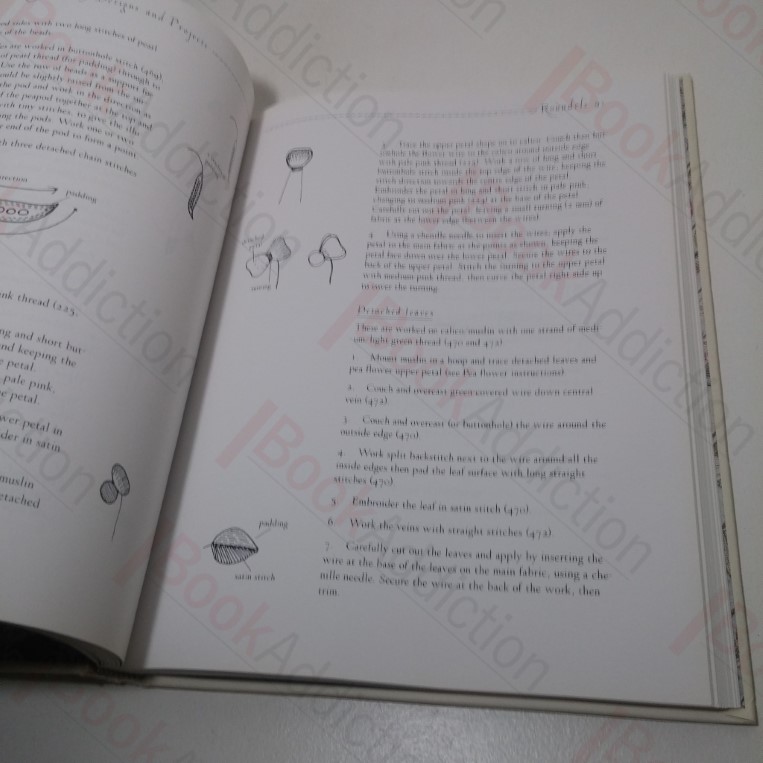 Designs and Projects
sides with two long stitches of pearl
of the beads.
are worked in buttonhole stitch (469)
of pearl thread (for padding) through to
Use the row of beads as a support for
should be slightly raised from the
the pod and work in the direction as
the peapod together at the top and
with tiny stitches, to give the
the pods. Work one or two
end of the pod to form a point
with three detached chain stitches
direction
padding
pink thread (225,
long and short but-
and keeping the
petal.
pale pink,
petal.
petal in
in satin
muslin
detached
Roundels
3 Trace the upper petal shape on to calico. Couch then but-
tonhole the flower wire to the calico around outside edge
with pale pink thread (225). Work a row of long and short
buttonhole stitch inside the top edge of the wire, keeping the
stitch direction towards the centre edge of the petal.
Embroider the petal in long and short stitch in pale pink,
changing to medium pink petal at the base of the petal.
Carefully cut out the petal, leaving a small turning (2 mm) of
fabric at the lower edge (between the wires).
4 Using a chenille needle to insert the wires, apply the
petal to the main fabric at the points as shown, keeping the
petal face down over the lower petal. Secure the wires to the
back of the upper petal. Stitch the turning to the upper petal
with medium pink thread, then curve the petal right side up
to cover the turning.
turning
Detached leaves
These are worked on calico/muslin with one strand of medi
um/light green thread (470 and 472).
1 Mount muslin in a hoop and trace detached leaves and
pea flower upper petal (see Pea flower instructions).
2 Couch and overcast green covered wire down central
vein (472).
3 Couch and overcast (or buttonhole) the wire around the
outside edge (470).
4 Work split backstitch next to the wire around all the
inside edges then pad the leaf surface with long straight
stitches (470).
5 Embroider the leaf in satin stitch (470).
6 Work the veins with straight stitches (472).
padding
satin stitch
7 Carefully cut out the leaves and apply by inserting the
wire at the base of the leaves on the main fabric, using a che
nille needle. Secure the wire at the back of the work, then
trim.
BookAddiction